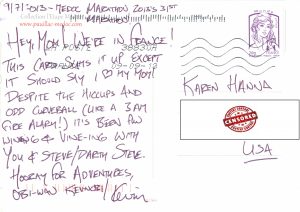 9/7/2013 - MEDOC MARATHON 2013'S 31ST
MARATHON!
www.pauillac-medoc.com
HEY, MOM! WE'RE IN FRANCE!
THIS CARD SUMS IT UP EXCEPT
IT SHOULD SAY I ♥ MY MOM!
DESPITE THE HICCUPS AND
ODD CURVEBALL (LIKE A 3AM
FIRE ALARM!) IT'S BEEN FUN
WINING & VINE-ING WITH
YOU & STEVE/DARTH STEVE.
HOORAY FOR ADVENTURES,
OBI-WON KEVNOBI / Kevin
38830A
09-09-13
KAREN HANNA
CENSORED
USA